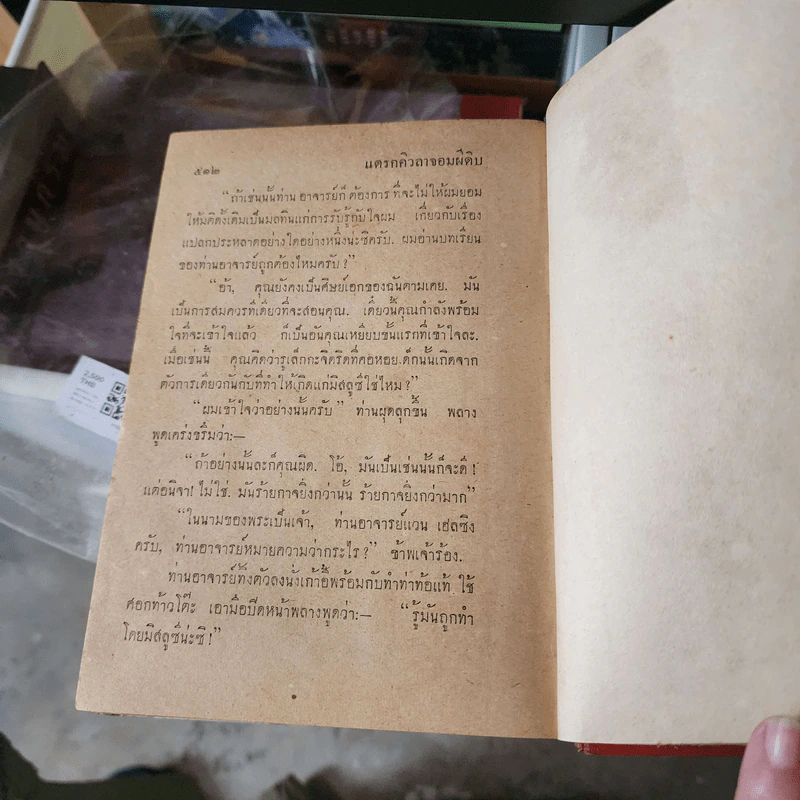 ๕๑๒
แดรกคิวลาจอมผีดิบ
“ถ้าเช่นนั้นท่าน อาจารย์ก็ ต้องการ ที่จะไม่ให้ผมยอม
ให้มติดั้งเดิมเป็นมลทินแก่การรับรู้กับใจผม เกี่ยวกับเรื่อง
แปลกประหลาดอย่างใดอย่างหนึ่งน่ะซีครับ. ผมอ่านบทเรียน
ของท่านอาจารย์ถูกต้องไหมครับ?”
“อ้า, คุณยังคงเป็นศิษย์เอกของฉันตามเคย. มัน
เป็นการสมควรทีเดียวที่จะสอนคุณ. เดี๋ยวนี้คุณกำลังพร้อม
ใจที่จะเข้าใจแล้ว ก็เป็นอันคุณเหยียบขั้นแรกที่เข้าใจละ.
เมื่อเช่นนี้ คุณคิดว่ารูเล็กกะจิดริดที่คอหอยเด็กนั้นเกิดจาก
ตัวการเดียวกันกับที่ทำให้เกิดแก่มิสลูซี่ใช่ไหม?”
“ผมเข้าใจว่าอย่างนั้นครับ” ท่านผุดลุกขึ้น พลาง
พูดเคร่งขรึมว่า:—
“ถ้าอย่างนั้นละก็คุณผิด. โอ้, มันเป็นเช่นนั้นก็จะดี!
แต่อนิจา! ไม่ใช่. มันร้ายกาจยิ่งกว่านั้น ร้ายกาจยิ่งกว่ามาก”
“ในนามของพระเป็นเจ้า, ท่านอาจารย์แวน เฮลซิง
ครับ, ท่านอาจารย์หมายความว่ากระไร?” ข้าพเจ้าร้อง.
ท่านอาจารย์ทิ้งตัวลงนั่งเก้าอี้พร้อมกับทำท่าท้อแท้ ใช้
ศอกท้าวโต๊ะ เอามือปิดหน้าพลางพูดว่า:— “รู้มันถูกทำ
โดยมิสลูซี่น่ะซิ!”
2,500
THB